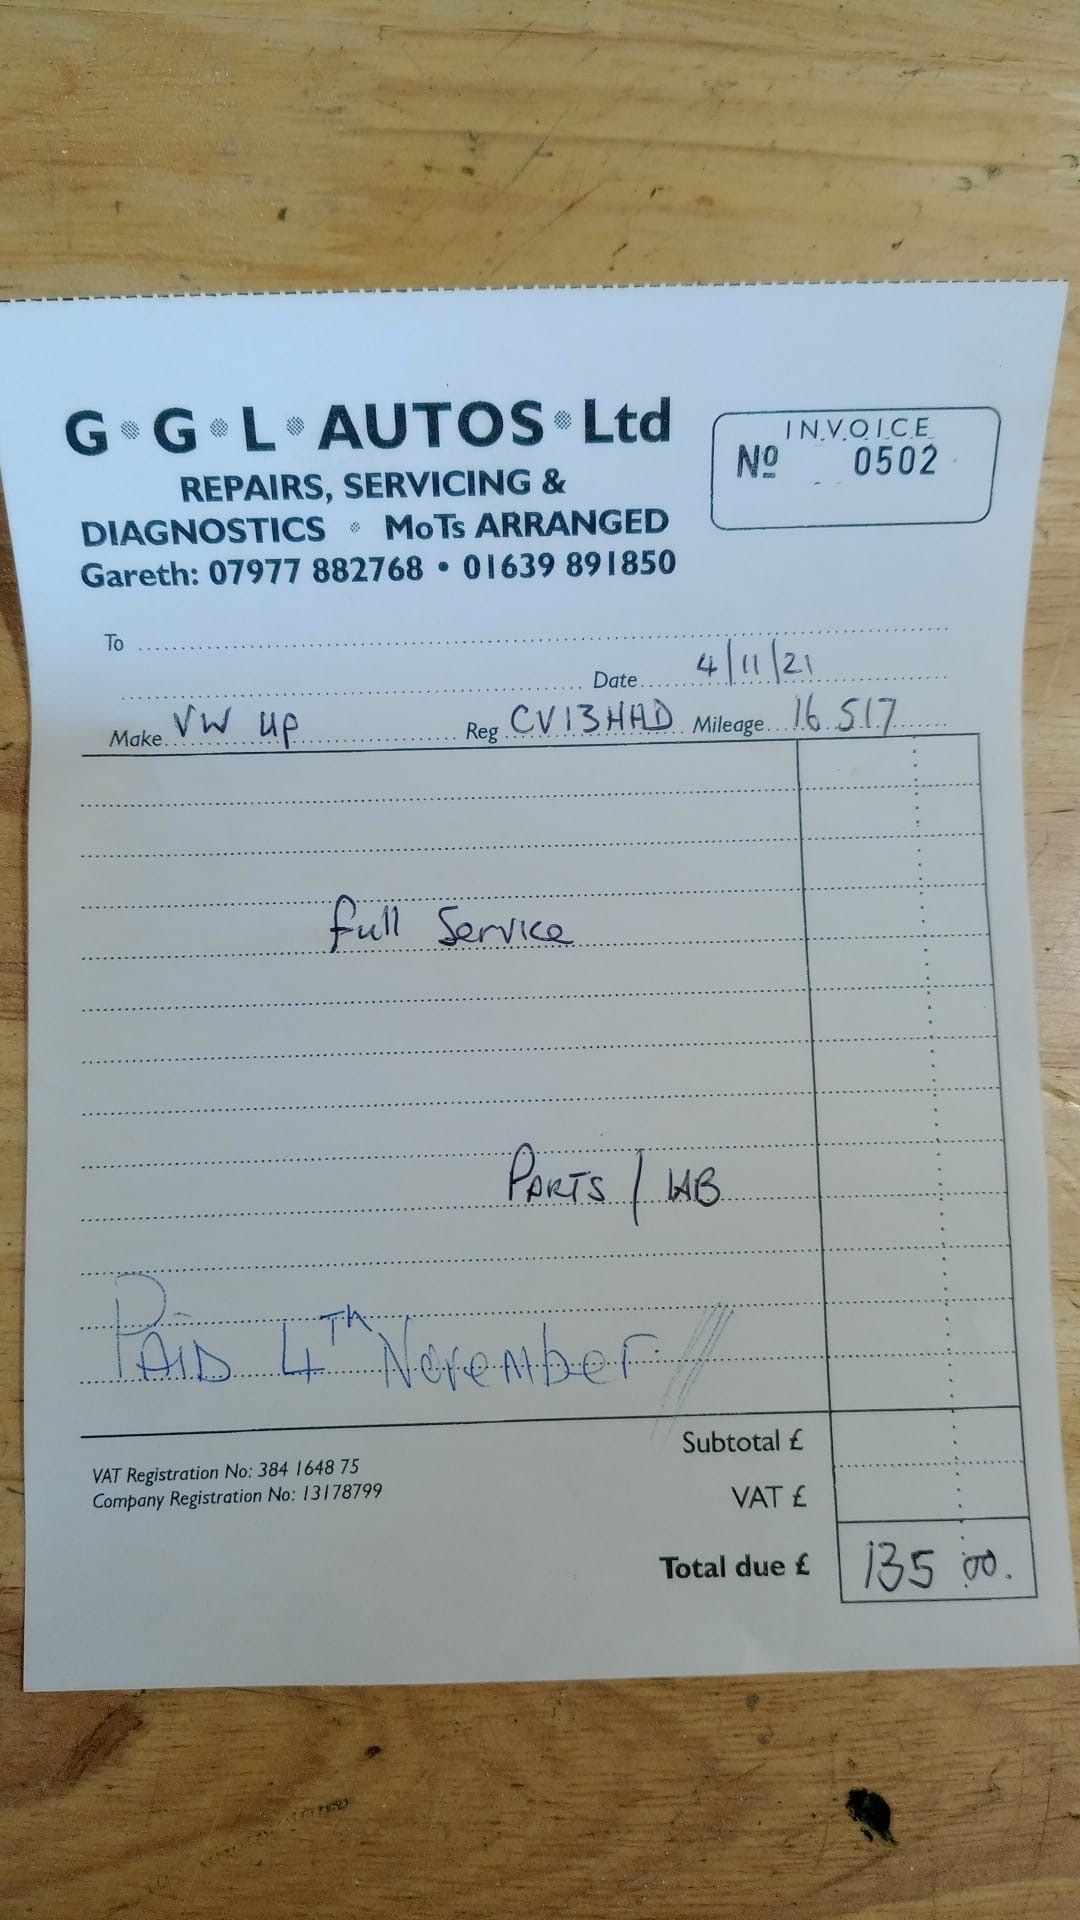 G · G · L · AUTOS · Ltd
REPAIRS, SERVICING &
DIAGNOSTICS · MoTs ARRANGED
Gareth: 07977 882768 • 01639 891850
INVOICE
Nº 0502
To
Date 4/11/21
Make VW up Reg CV13HHD Mileage 16 517
full Service
PARTS / LAB
PAID 4Th November
Subtotal £
VAT Registration No: 384 1648 75
Company Registration No: 13178799
VAT £
Total due £ 135 00.